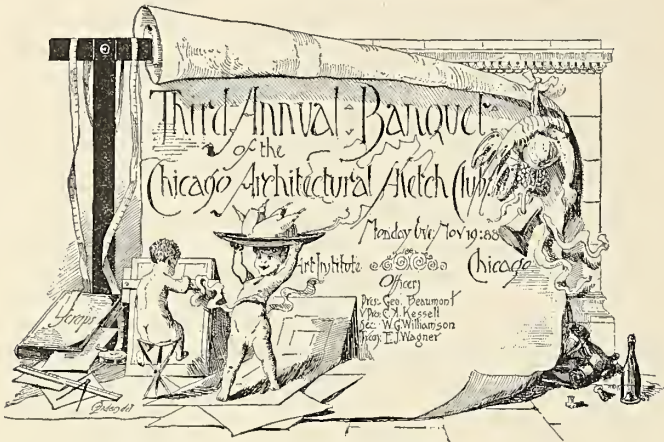 Third Annual Banquet
of the
Chicago Architectural Sketch Club
Monday Eve Nov 19:88
Art Institute
Chicago
Officers
Pres. Geo. Beaumont
V Pres. C. A. Kessell
Sec. W. G. Williamson
E. J. Wagner
Scraps